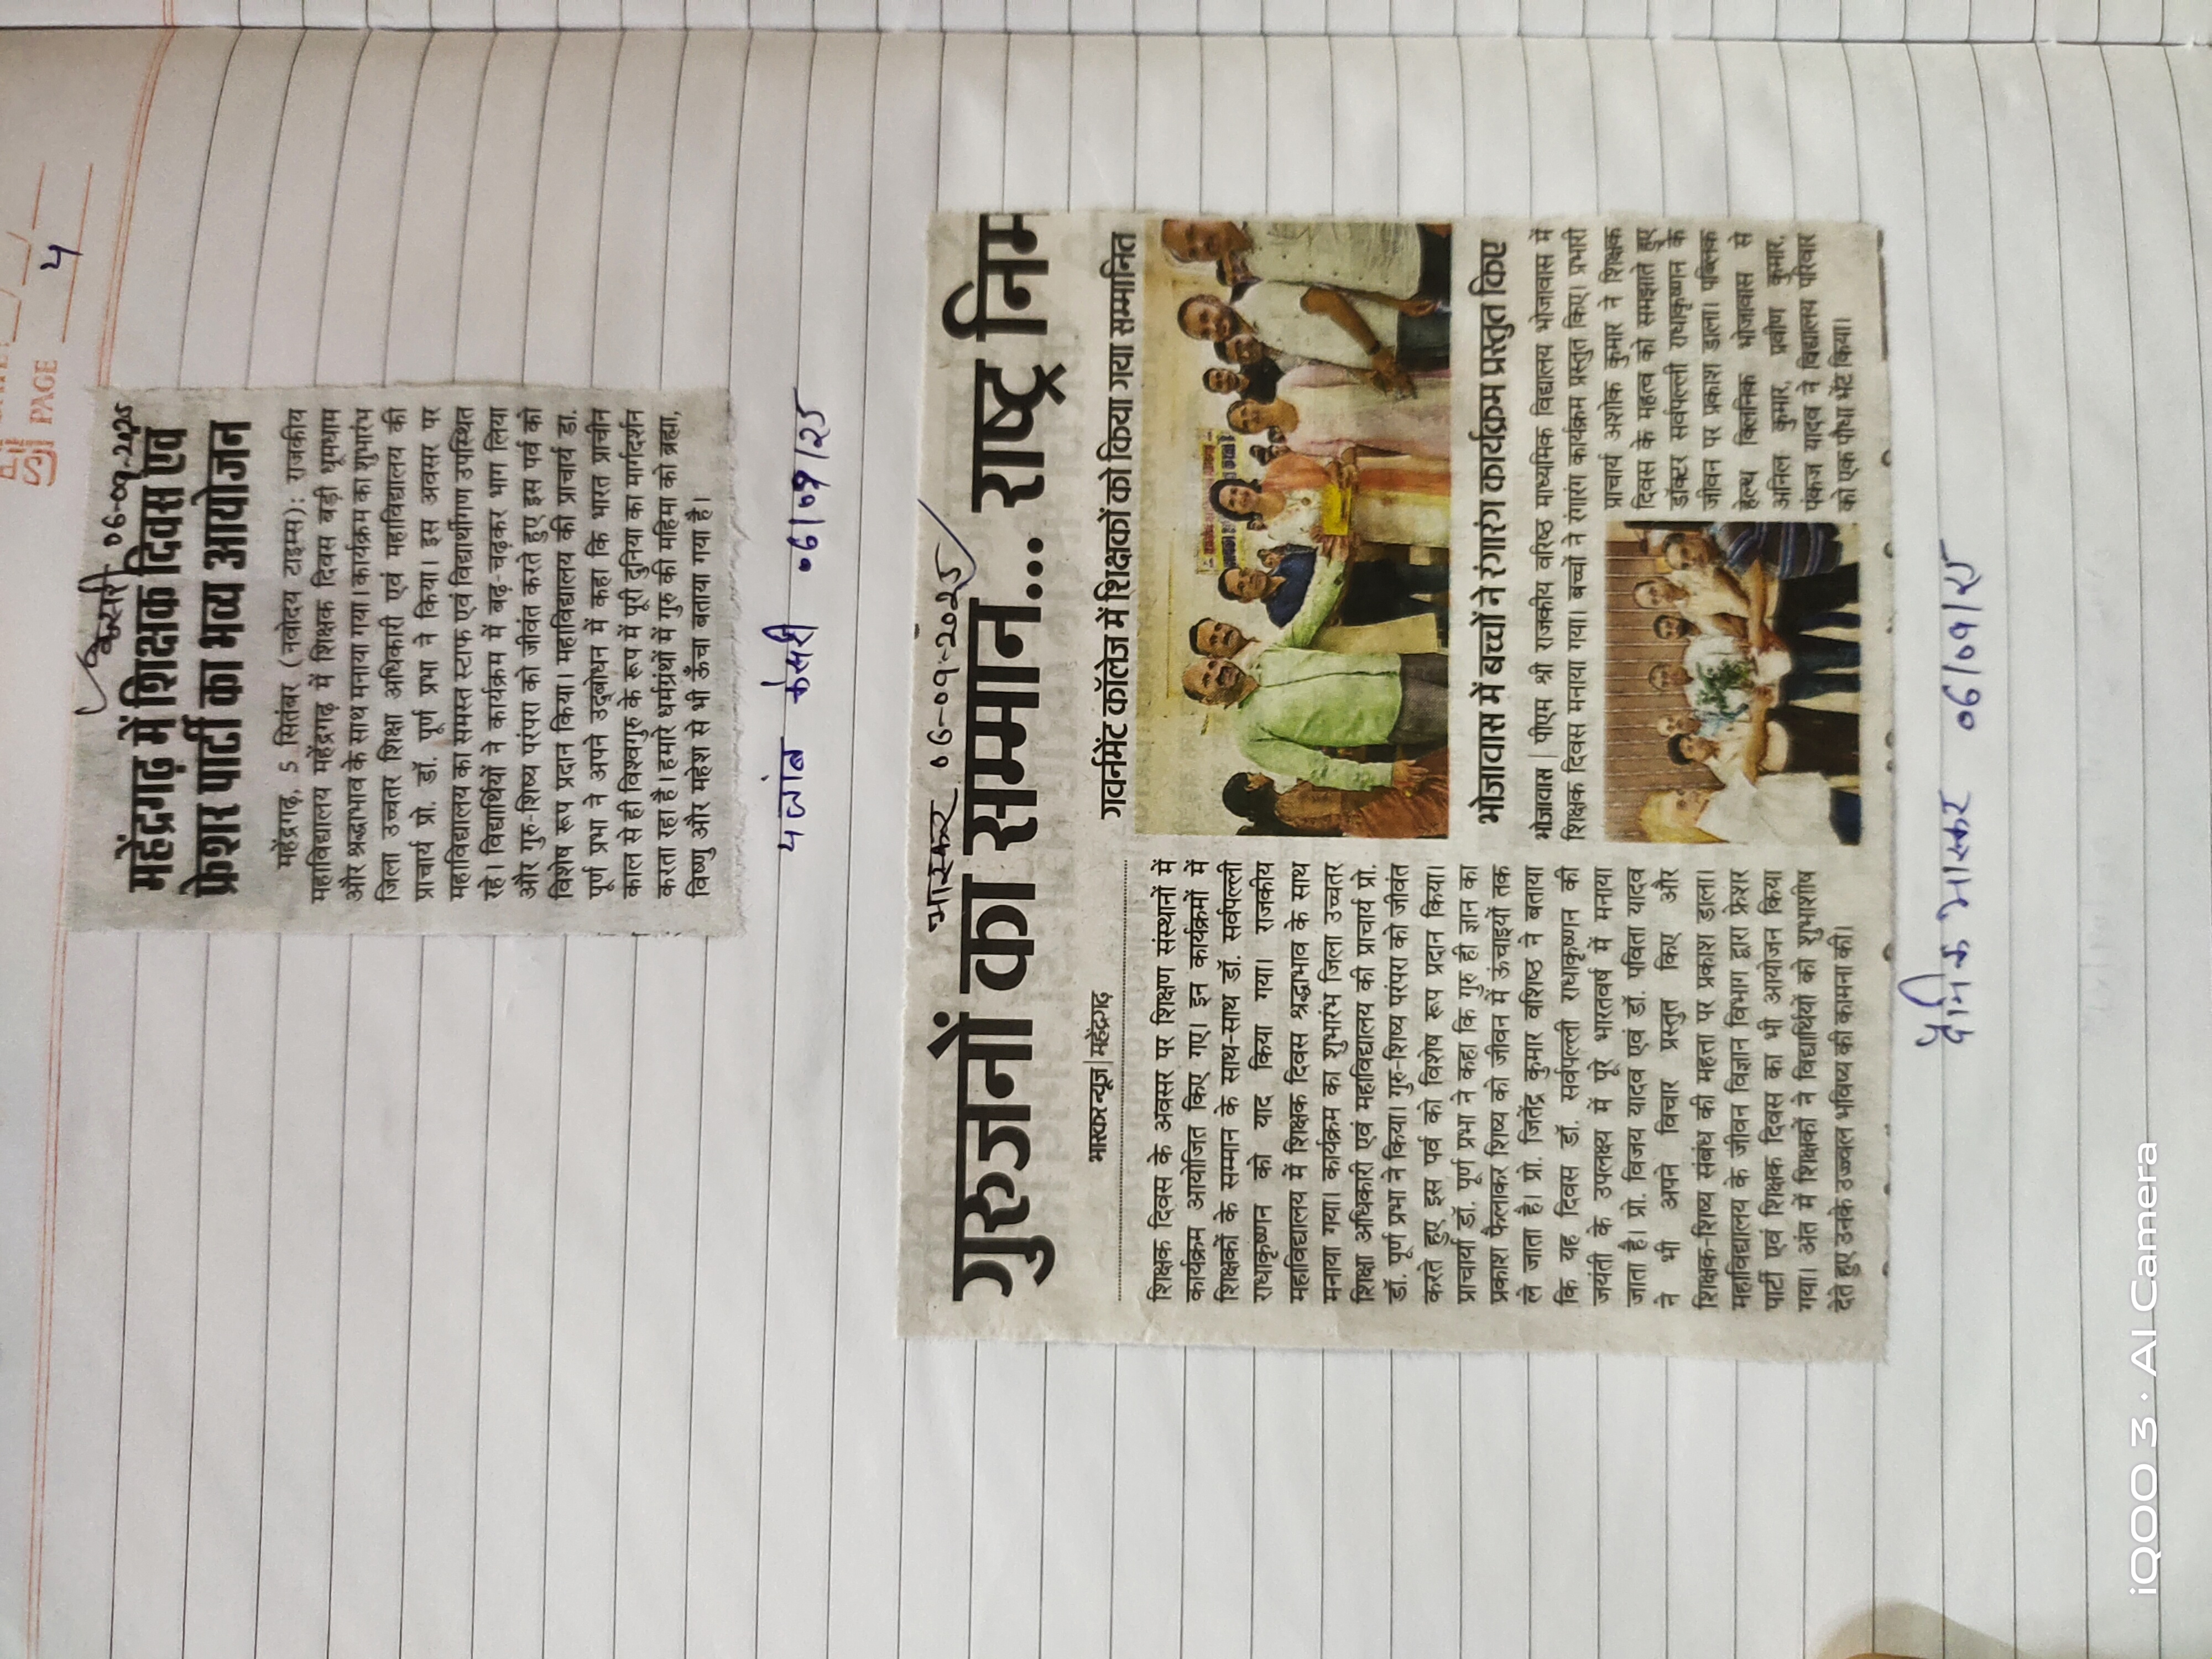 PAGE
५
केसरी 06-09-2025
महेंद्रगढ़ में शिक्षक दिवस एवं
फ्रेशर पार्टी का भव्य आयोजन
महेंद्रगढ़, 5 सितंबर (नवोदय टाइम्स): राजकीय
महाविद्यालय महेंद्रगढ़ में शिक्षक दिवस बड़ी धूमधाम
और श्रद्धाभाव के साथ मनाया गया। कार्यक्रम का शुभारंभ
जिला उच्चतर शिक्षा अधिकारी एवं महाविद्यालय की
प्राचार्य प्रो. डॉ. पूर्ण प्रभा ने किया। इस अवसर पर
महाविद्यालय का समस्त स्टाफ एवं विद्यार्थीगण उपस्थित
रहे। विद्यार्थियों ने कार्यक्रम में बढ़-चढ़कर भाग लिया
और गुरु-शिष्य परंपरा को जीवंत करते हुए इस पर्व को
विशेष रूप प्रदान किया। महाविद्यालय की प्राचार्य डा.
पूर्ण प्रभा ने अपने उद्बोधन में कहा कि भारत प्राचीन
काल से ही विश्वगुरु के रूप में पूरी दुनिया का मार्गदर्शन
करता रहा है। हमारे धर्मग्रंथों में गुरु की महिमा को ब्रह्मा,
विष्णु और महेश से भी ऊँचा बताया गया है।
पंजाब केसरी 06/09/25
भास्कर 06-09-2025
गुरुजनों का सम्मान... राष्ट्र निर्म
भास्कर न्यूज | महेंद्रगढ़
शिक्षक दिवस के अवसर पर शिक्षण संस्थानों में
कार्यक्रम आयोजित किए गए। इन कार्यक्रमों में
शिक्षकों के सम्मान के साथ-साथ डॉ. सर्वपल्ली
राधाकृष्णन को याद किया गया। राजकीय
महाविद्यालय में शिक्षक दिवस श्रद्धाभाव के साथ
मनाया गया। कार्यक्रम का शुभारंभ जिला उच्चतर
शिक्षा अधिकारी एवं महाविद्यालय की प्राचार्य प्रो.
डॉ. पूर्ण प्रभा ने किया। गुरु-शिष्य परंपरा को जीवंत
करते हुए इस पर्व को विशेष रूप प्रदान किया।
प्राचार्या डॉ. पूर्ण प्रभा ने कहा कि गुरु ही ज्ञान का
प्रकाश फैलाकर शिष्य को जीवन में ऊंचाइयों तक
ले जाता है। प्रो. जितेंद्र कुमार वशिष्ठ ने बताया
कि यह दिवस डॉ. सर्वपल्ली राधाकृष्णन की
जयंती के उपलक्ष्य में पूरे भारतवर्ष में मनाया
जाता है। प्रो. विजय यादव एवं डॉ. पविता यादव
ने भी अपने विचार प्रस्तुत किए और
शिक्षक-शिष्य संबंध की महत्ता पर प्रकाश डाला।
महाविद्यालय के जीवन विज्ञान विभाग द्वारा फ्रेशर
पार्टी एवं शिक्षक दिवस का भी आयोजन किया
गया। अंत में शिक्षकों ने विद्यार्थियों को शुभाशीष
देते हुए उनके उज्ज्वल भविष्य की कामना की।
गवर्नमेंट कॉलेज में शिक्षकों को किया गया सम्मानित
भोजावास में बच्चों ने रंगारंग कार्यक्रम प्रस्तुत किए
भोजावास | पीएम श्री राजकीय वरिष्ठ माध्यमिक विद्यालय भोजावास में
शिक्षक दिवस मनाया गया। बच्चों ने रंगारंग कार्यक्रम प्रस्तुत किए। प्रभारी
प्राचार्य अशोक कुमार ने शिक्षक
दिवस के महत्व को समझाते हुए
डॉक्टर सर्वपल्ली राधाकृष्णन के
जीवन पर प्रकाश डाला। पब्लिक
हेल्थ क्लिनिक भोजावास से
अनिल कुमार, प्रवीण कुमार,
पंकज यादव ने विद्यालय परिवार
को एक पौधा भेंट किया।
दैनिक भास्कर 06/09/25
iQOO 3 · AI Camera